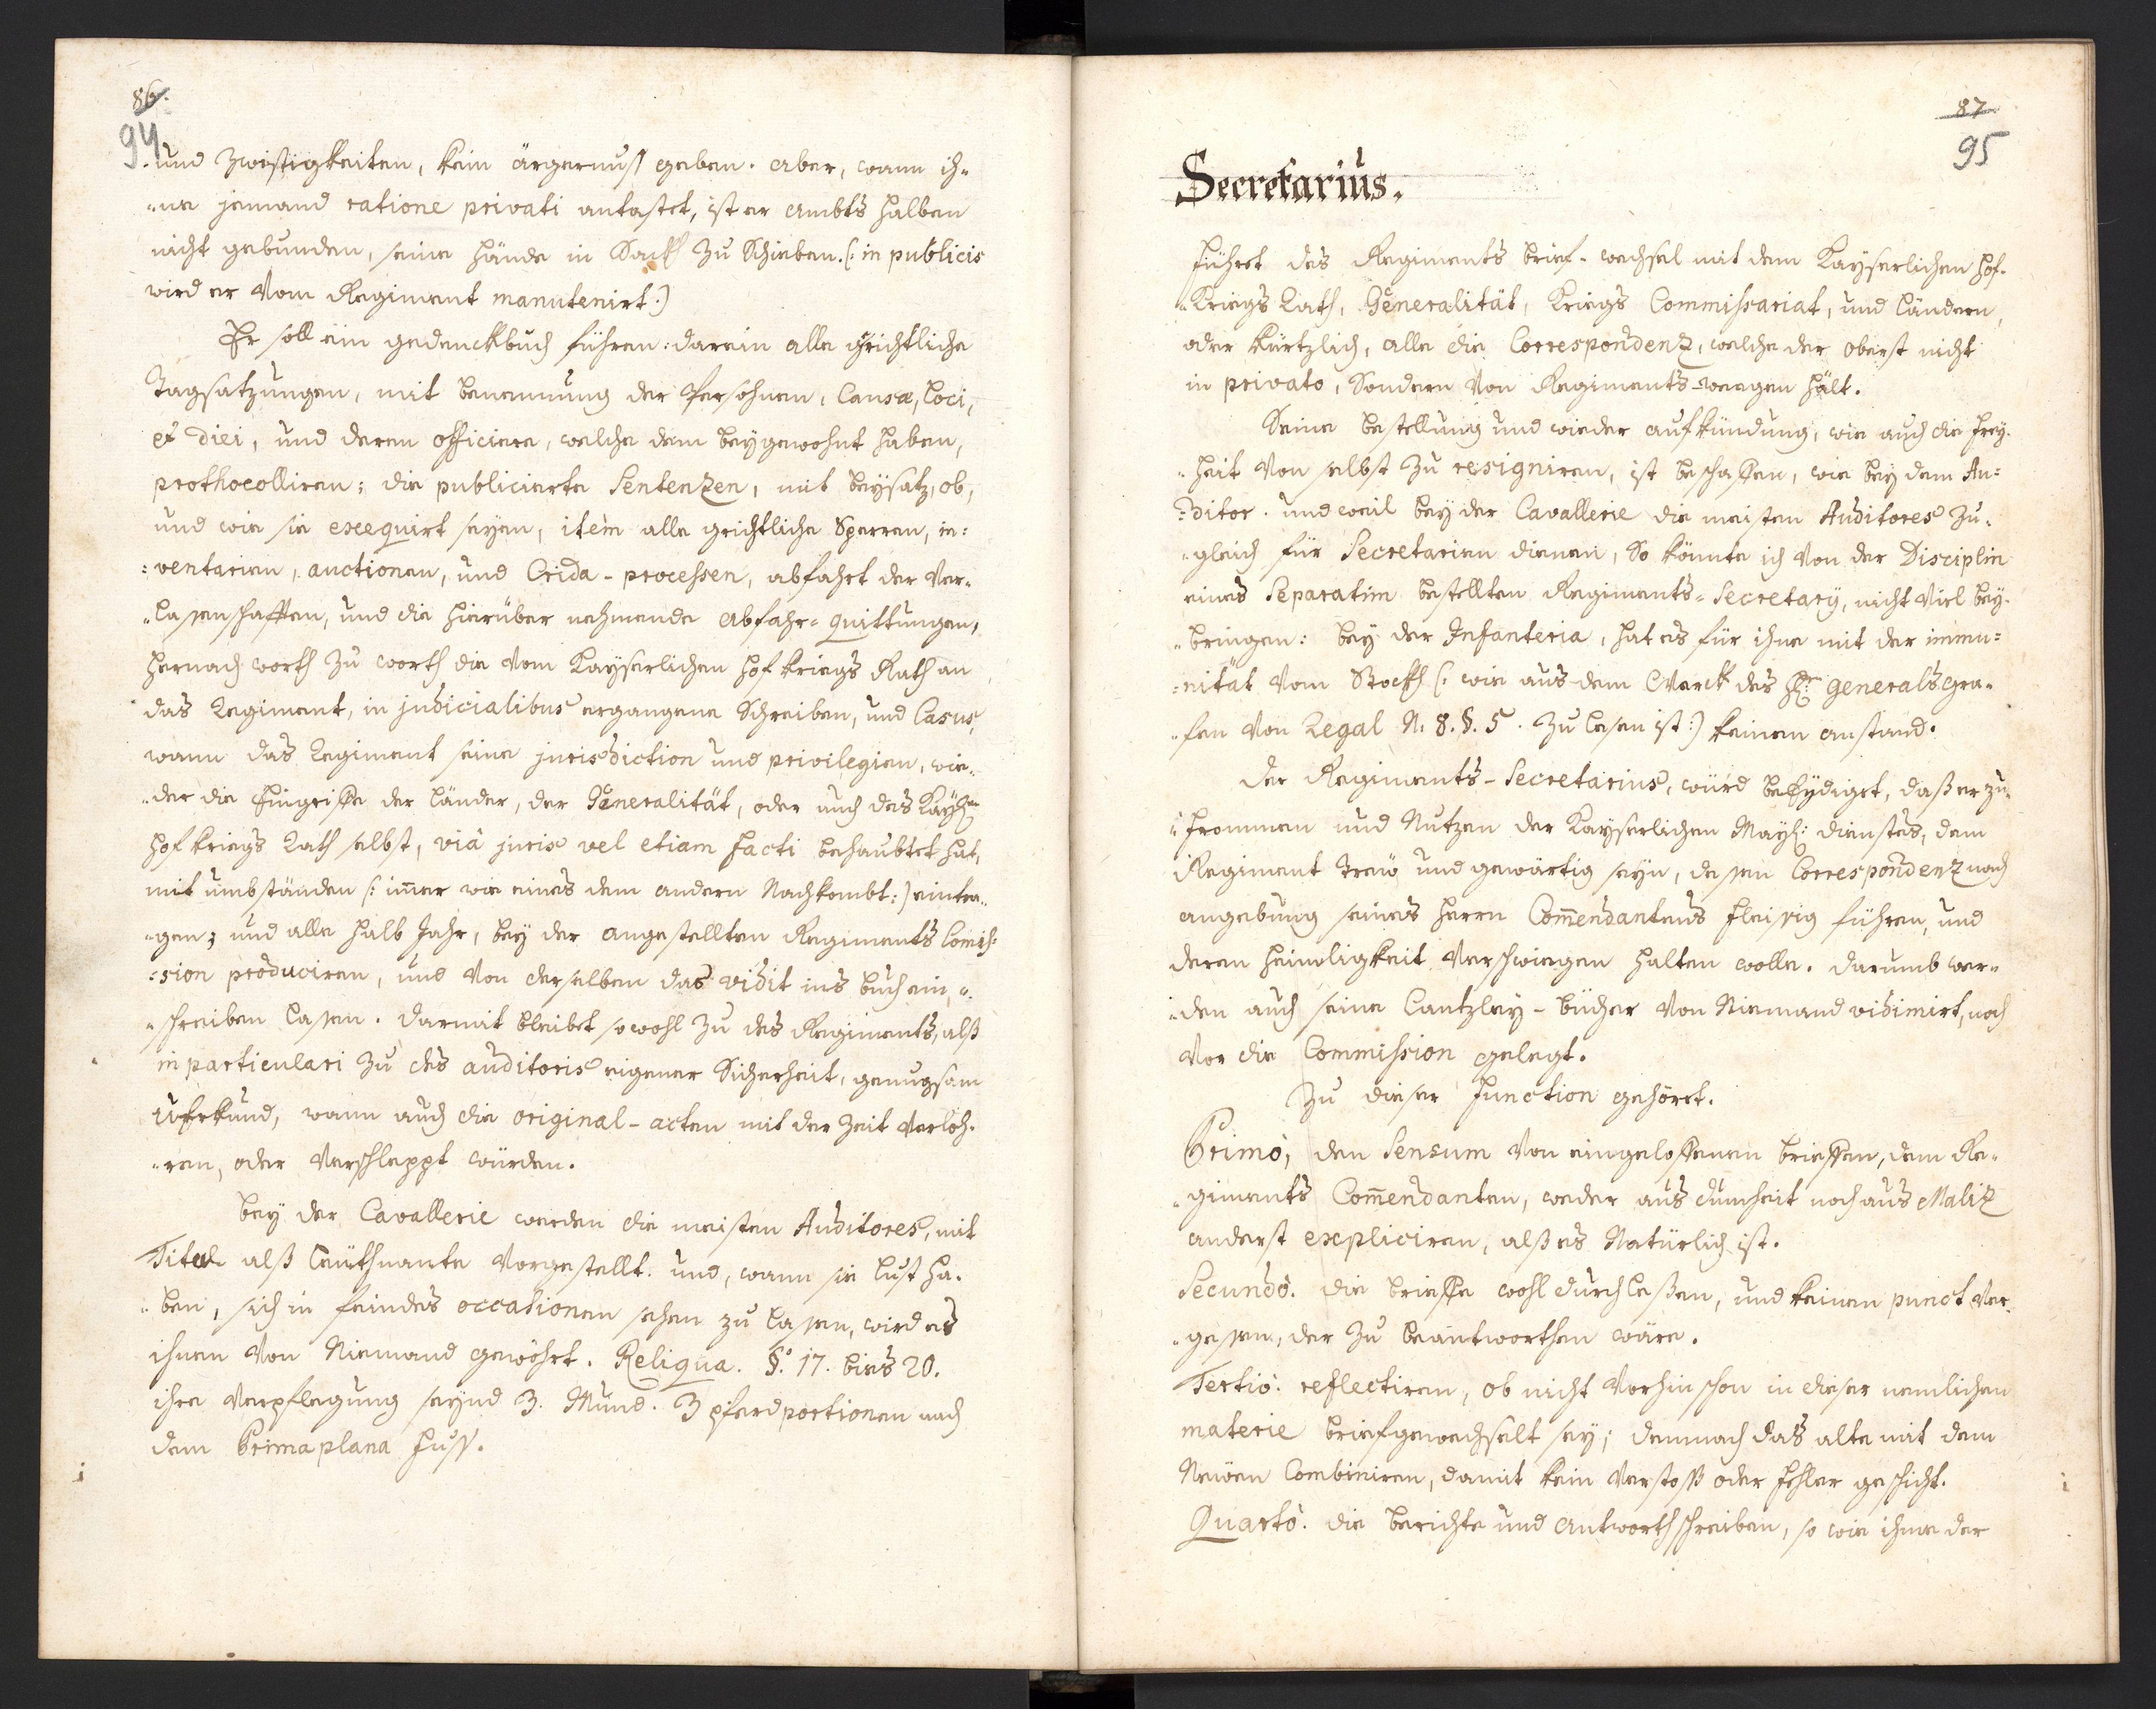 86.
94
und Zwistigkeiten, kein ärgernuß geben. aber, wann ih-
-ne jemand ratione privati antastet, ist er Ambts halben
nicht gebunden, seine hände in Sackh Zu Schieben. (: in publicis
wird er Vom Regiment manutenirt:)
Er soll ein gedenckbuch führen: darein alle grichtliche
Tagsatzungen, mit benennung der Persohnen, Causæ, Loci,
et Diei, und deren officiere, welche dem beygewohnt haben,
prothocolliren; die publicierte Sentenzen, mit beysatz, ob,
und wie sie exequirt seyen, item alle grichtliche Sperren, in=
=ventarien, auctionen, und Crida-processen, abfahrt der Ver-
-lassenschafften, und die hierüber nehmende Abfahr-quittungen,
hernach worth Zu worth die Vom Kayserlichen hof kriegs Rath an
das Regiment, in judicialibus ergangene Schreiben, und Casus,
wann das Regiment seine jurisdiction und privilegien, wie-
-der die Eingriffe der Länder, der Generalität, oder auch des Kayßn
hof kriegs Rath selbst, viâ juris vel etiam facti behaubtet hat,
mit umbständen (: im̄er wie eines dem andern Nachkombt:) eintra-
-gen; und alle halb Jahr, bey der angestellten Regiments Comis=
=sion produciren, und Von derselben das vidit ins buch ein-
-schreiben lassen. darmit bleibet sowohl Zu des Regiments, alß
in particulari Zu des auditoris eigener Sicherheit, genugsam
Uhrkund, wann auch die original-acten mit der Zeit Verloh-
-ren, oder Verschleppt würden.
bey der Cavallerie werden die meisten Auditores, mit
Titel alß Leüthnante Vorgestellt. und, wann sie Lust ha-
-ben, sich in feindes occasionen sehen zu lassen, wird es
ihnen Von Niemand gewöhrt. Reliqua. §.° 17. bies 20.
ihre Verpflegung seynd 3. Mund. 3 pferdportionen nach
dem Primaplana fuß.
87
95
Secretarius.
führet des Regiments brief-wechsel mit dem Kayserlichen hof-
-Kriegs Rath, Generalität, Kriegs Commissariat, und Ländern,
oder kürtzlich, alle die Correspondenz, welche der Oberst nicht
in privato, Sondern Von Regiments-weegen hält.
Seine bestellung und wieder aufkündung, wie auch die frey-
-heit Von selbst Zu resigniren, ist beschaffen, wie bey dem Au=
=ditor. und weil bey der Cavallerie die meisten Auditores Zu-
-gleich für Secretarien dienen, So könnte ich Von der Disciplin
eines Separatim bestellten Regiments-Secretarÿ, nicht Viel bey-
-bringen: bey der Infanteria, hat es für ihne mit der immu=
=nität Vom Stockh (: wie aus dem Werck des Hr: Generals Gra-
-fen Von Regal N. 8. §. 5. Zu lesen ist:) keinen anstand.
der Regiments-Secretarius, würd beeÿdiget, daß er zu
frommen und Nutzen der Kayserlichen Mayß: diensten, dem
Regiment treü und gewärtig seyn, dessen Correspondenz nach
angebung seines herrn Com̄endantens fleissig führen, und
deren heimligkeit Verschwiegen halten wolle. darumb wer-
-den auch seine Cantzley-bücher Von Niemand vidimirt, noch
Vor die Commission gelegt.
Zu dieser Function gehöret.
Primò, den Sensum Von eingeloffenen brieffen, dem Re-
-giments Com̄endanten, weder aus dumheit noch aus Maliz
anderst expliciren, alß es Natürlich ist.
Secundò. die brieffe wohl durchleßen, und keinen punct Ver-
-gessen, der Zu beantworthen wäre.
Tertiò. reflectiren, ob nicht Vorhin schon in dieser nemlichen
materie briefgewechselt sey; demnach das alte mit dem
Neüen Combiniren, damit kein Verstoß oder fehler geschicht.
Quartò. die berichte und Antworthschreiben, so wie ihme der